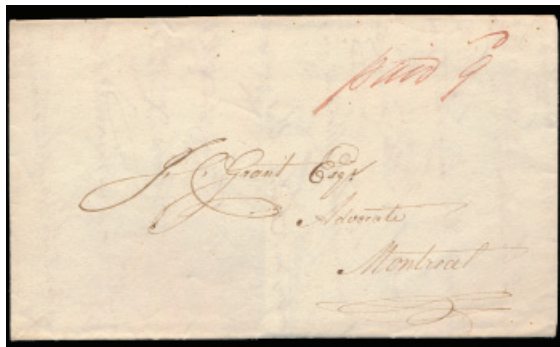 paid 9
J. C. Grant Esqr.
Advocate
Montreal